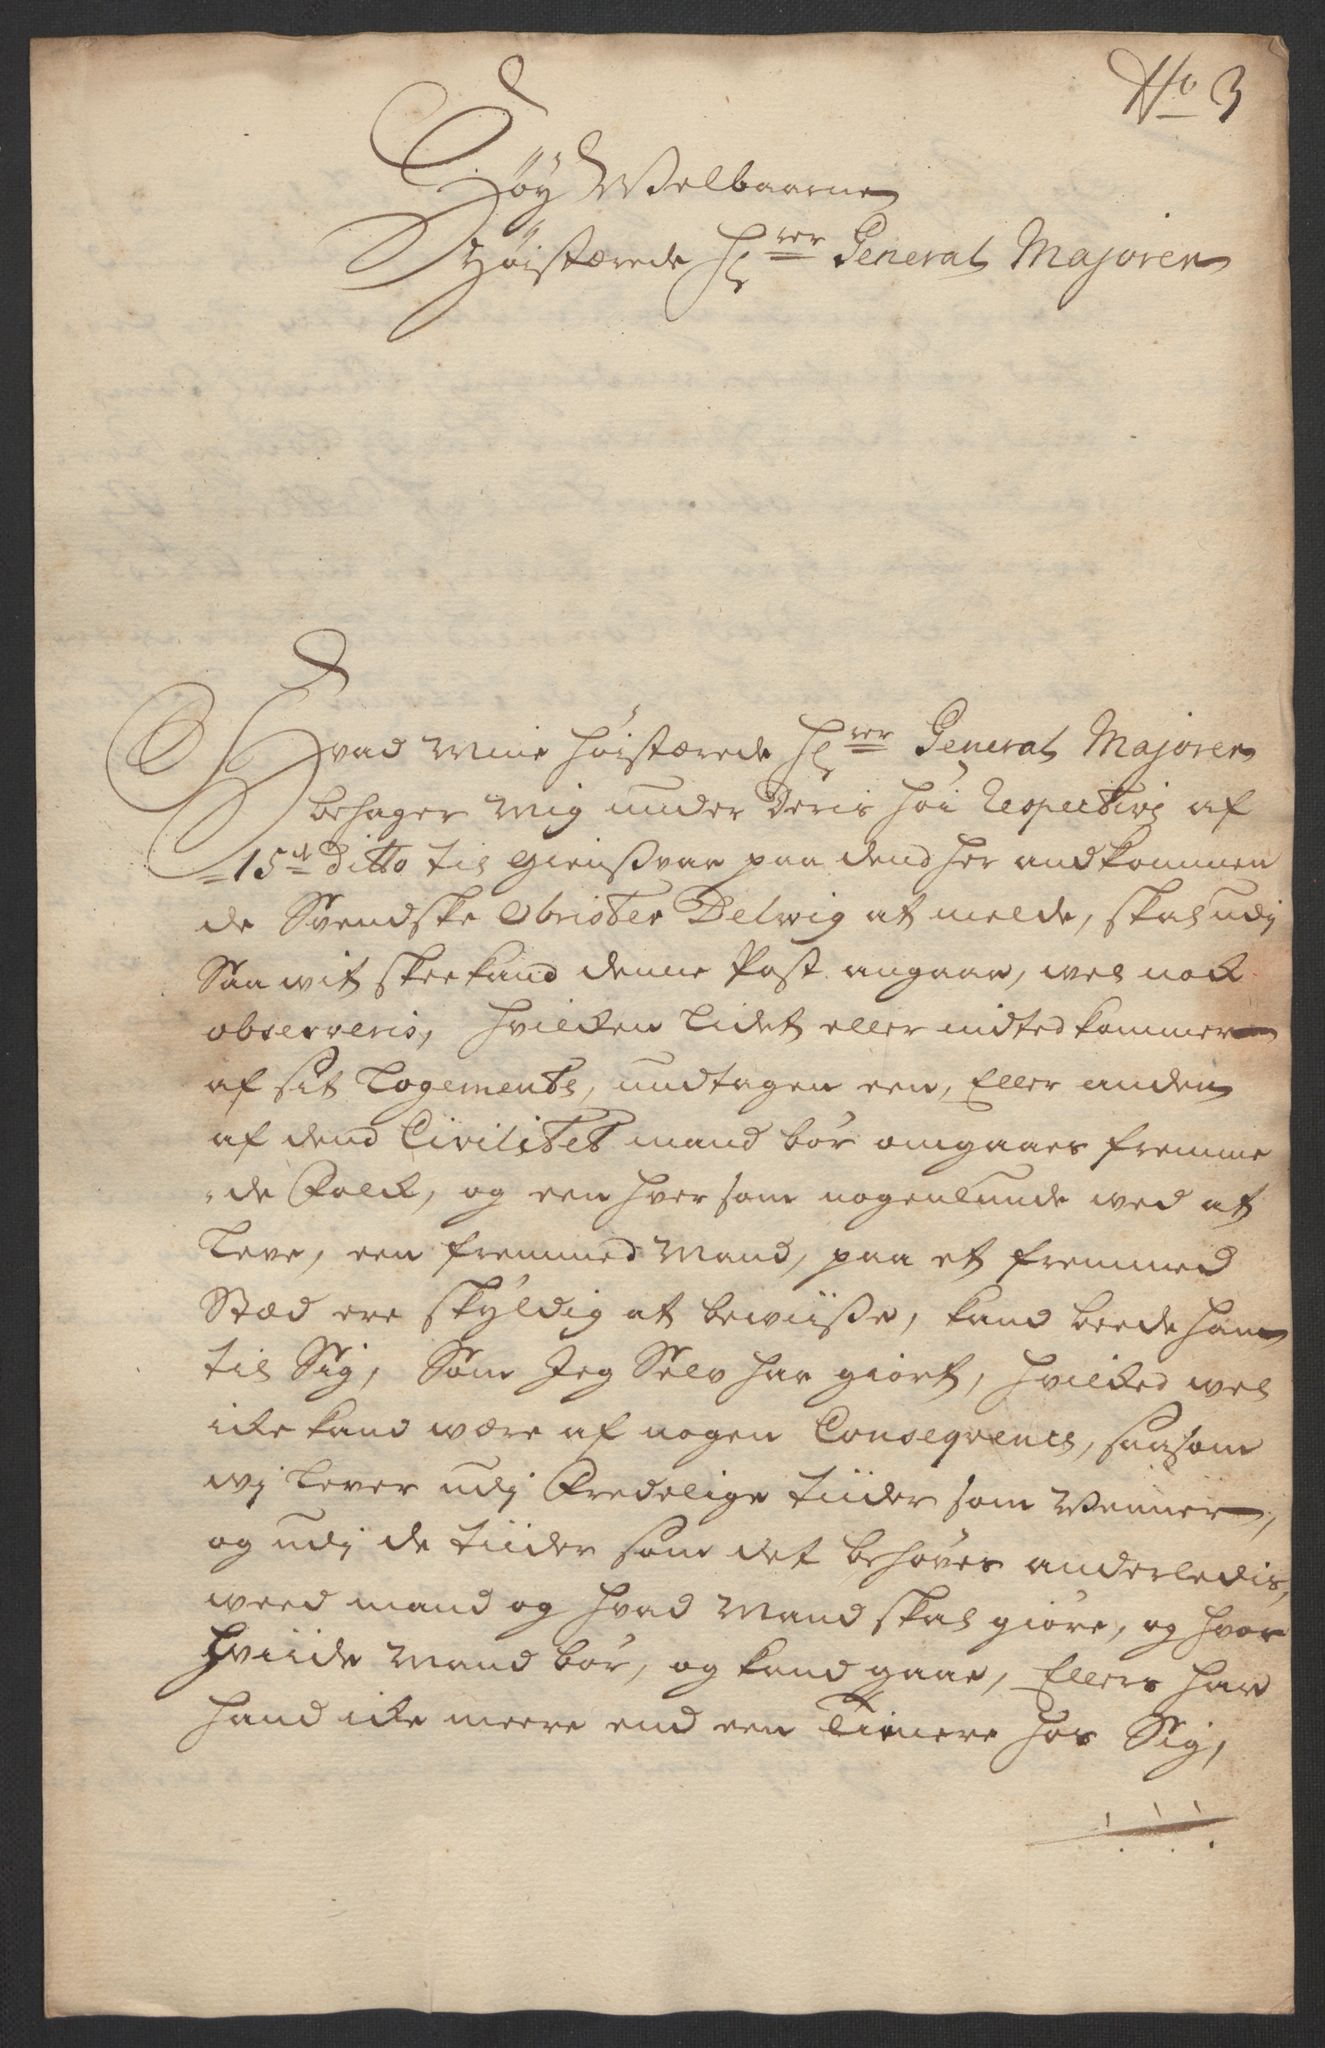 No 3
Høy Welbaarne
Høistærede Hrer General Majoren
Hvad Min høistærede Hrer General Majoren
behager Mig under Deris høi Respective af
15de ditto til Giensvar paa dend her andkommen
de Svendske Obrister Delwig at melde, skal udj
Saa wit skee kand denne Post angaar, wel nock
observeris, hvilcken Lidet eller intted kommer
af sit Logemente, undtagen een, Eller anden
af dend Civilitet mand bør omgaaes fremme
de Folck, og een hver som nogenlunde wed at
Leve, een fremmed Mand, paa et fremmed
Stæd ere skyldig at bewiise, kand beede ham
til Sig, Som Jeg Selv har giort, hvilcked wel
icke kand wære af nogen Conseqvence, saasom
wj Lever udj Fredelige tiider som Wenner,
og udj de tiider som det behøves anderledis,
weed mand og hvad Mand skal giøre, og hvor
hviide Mand bør, og kand gaae, Ellers har
hand icke meere end een Tienere hos Sig,